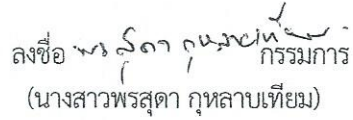 ลงชื่อ พรสุดา กุหลาบเทียม กรรมการ
(นางสาวพรสุดา กุหลาบเทียม)